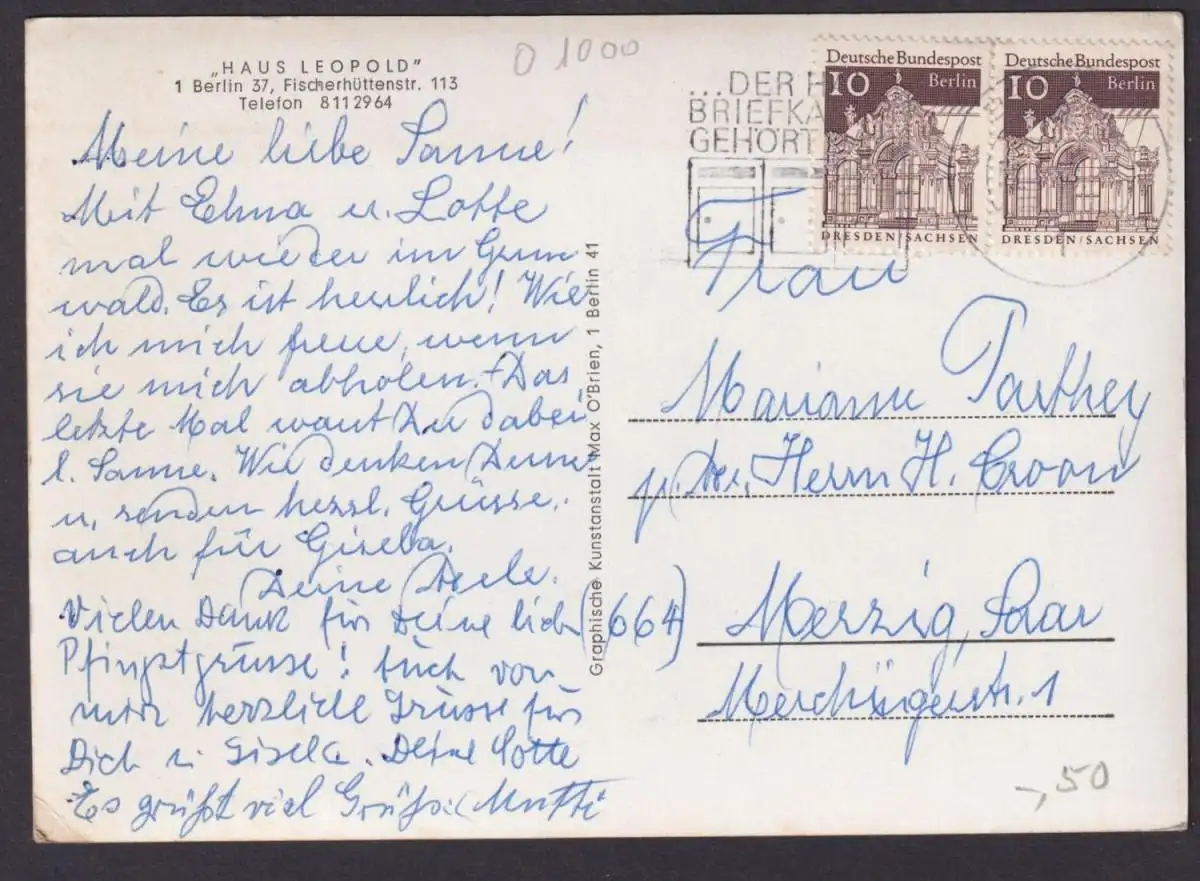 „HAUS LEOPOLD"
1 Berlin 37, Fischerhüttenstr. 113
Telefon 8112964
0 1000
...DER H
BRIEFKA
GEHÖRT
Deutsche Bundespost
10 Berlin
DRESDEN/SACHSEN
Deutsche Bundespost
10 Berlin
DRESDEN/SACHSEN
Meine liebe Sanne!
Mit Erna u. Lotte
mal wieder im Grun
wald. Es ist herrlich! Wie
ich mich freue, wenn
sie mich abholen. Das
letzte Mal warst Du dabei
l. Sanne. Wir denken Deiner
u. senden herzl. Grüsse,
auch für Gisela.
Deine
Vielen Dank für Deine lieben
Pfingstgrüsse! Auch von
mir herzliche Grüsse für
Dich u. Gisela. Deine Lotte
Es grüßt viel Mutti
Graphische Kunstanstalt Max O'Brien, 1 Berlin 41
Frau
Marianne Parthey
p. Adr. Herrn H. Croon
(664) Merzig, Saar
Merchingerstr. 1
-,50